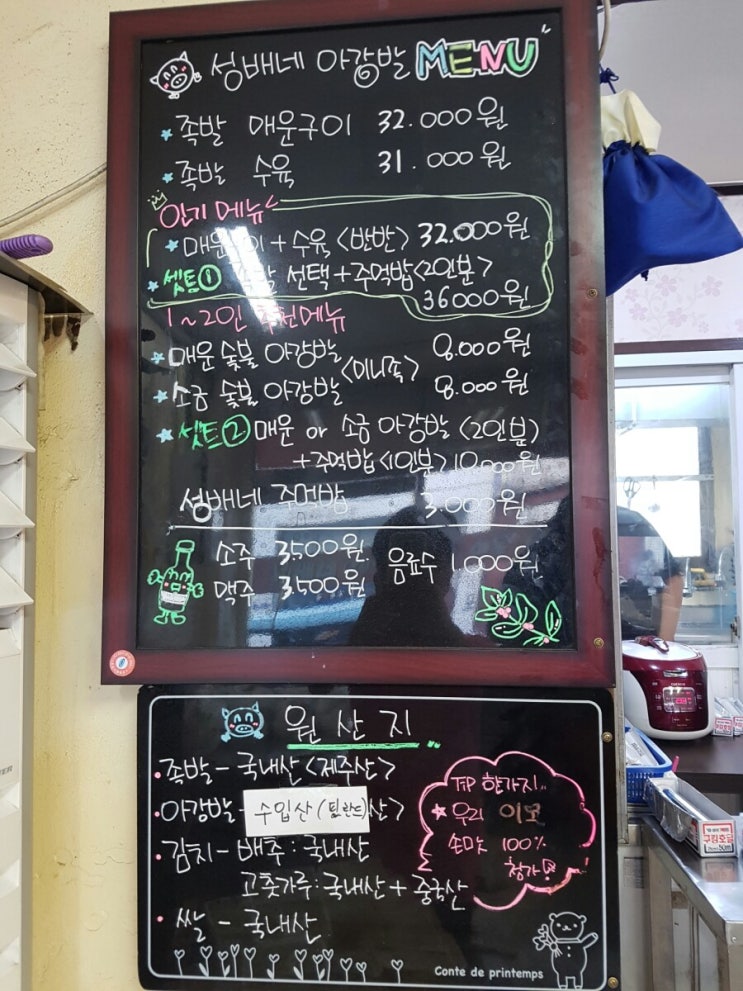 성배네 아강발 MENU
족발 매운구이 32.000원
족발 수육 31.000원
인기 메뉴
매운구이 + 수육 <반반> 32.000원
셋트① 족발 선택 + 주먹밥 <2인분>
36000원
1~2인 추천메뉴
매운 숯불 아강발 8.000원
<미니족>
소금 숯불 아강발 8.000원
셋트② 매운 or 소금 아강발 <2인분>
+ 주먹밥 <1인분> 10.000원
성배네 주먹밥 3.000원
소주 3500원 음료수 1.000원
맥주 3.500원
원산지
족발 - 국내산 <제주산>
아강발 - 수입산 (핀란드)산>
김치 - 배추 : 국내산
고춧가루 : 국내산 + 중국산
쌀 - 국내산
TIP 한가지..
우리 이모
손맛 100%
첨가
Conte de printemps
구김호일